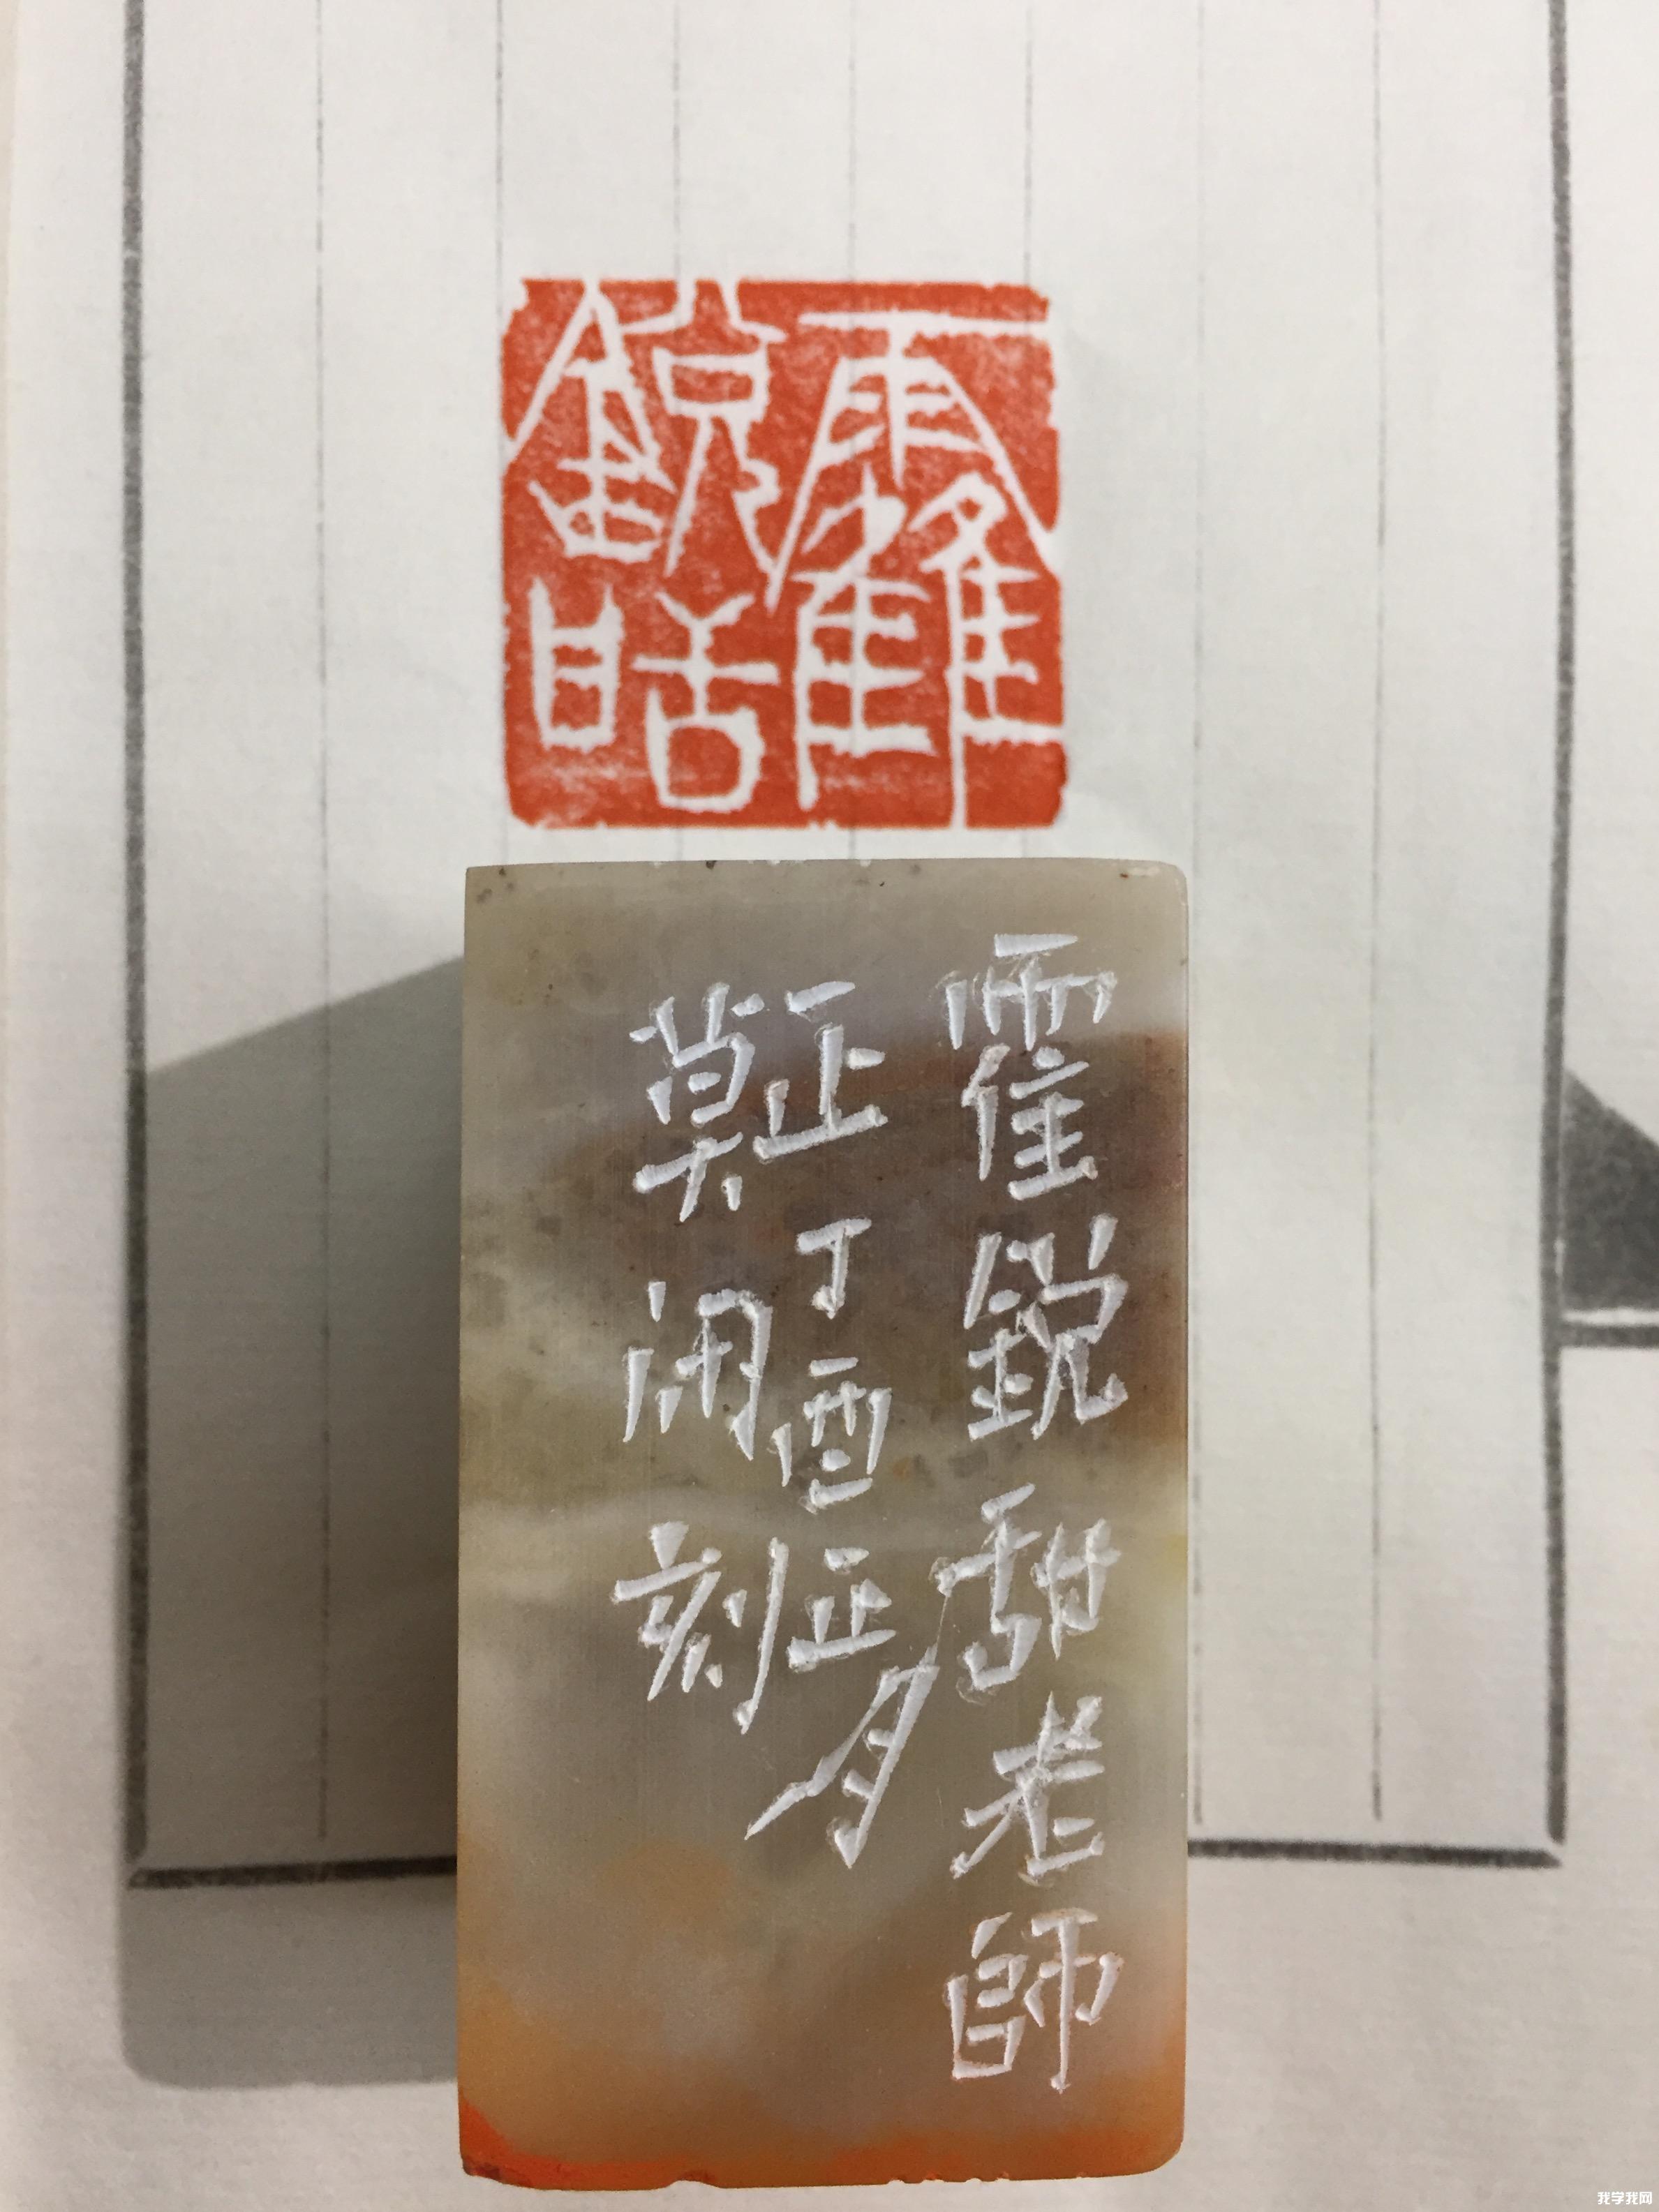 靃
銳甜
霍銳甜老師
正丁酉正月
莫闲刻
我学我网